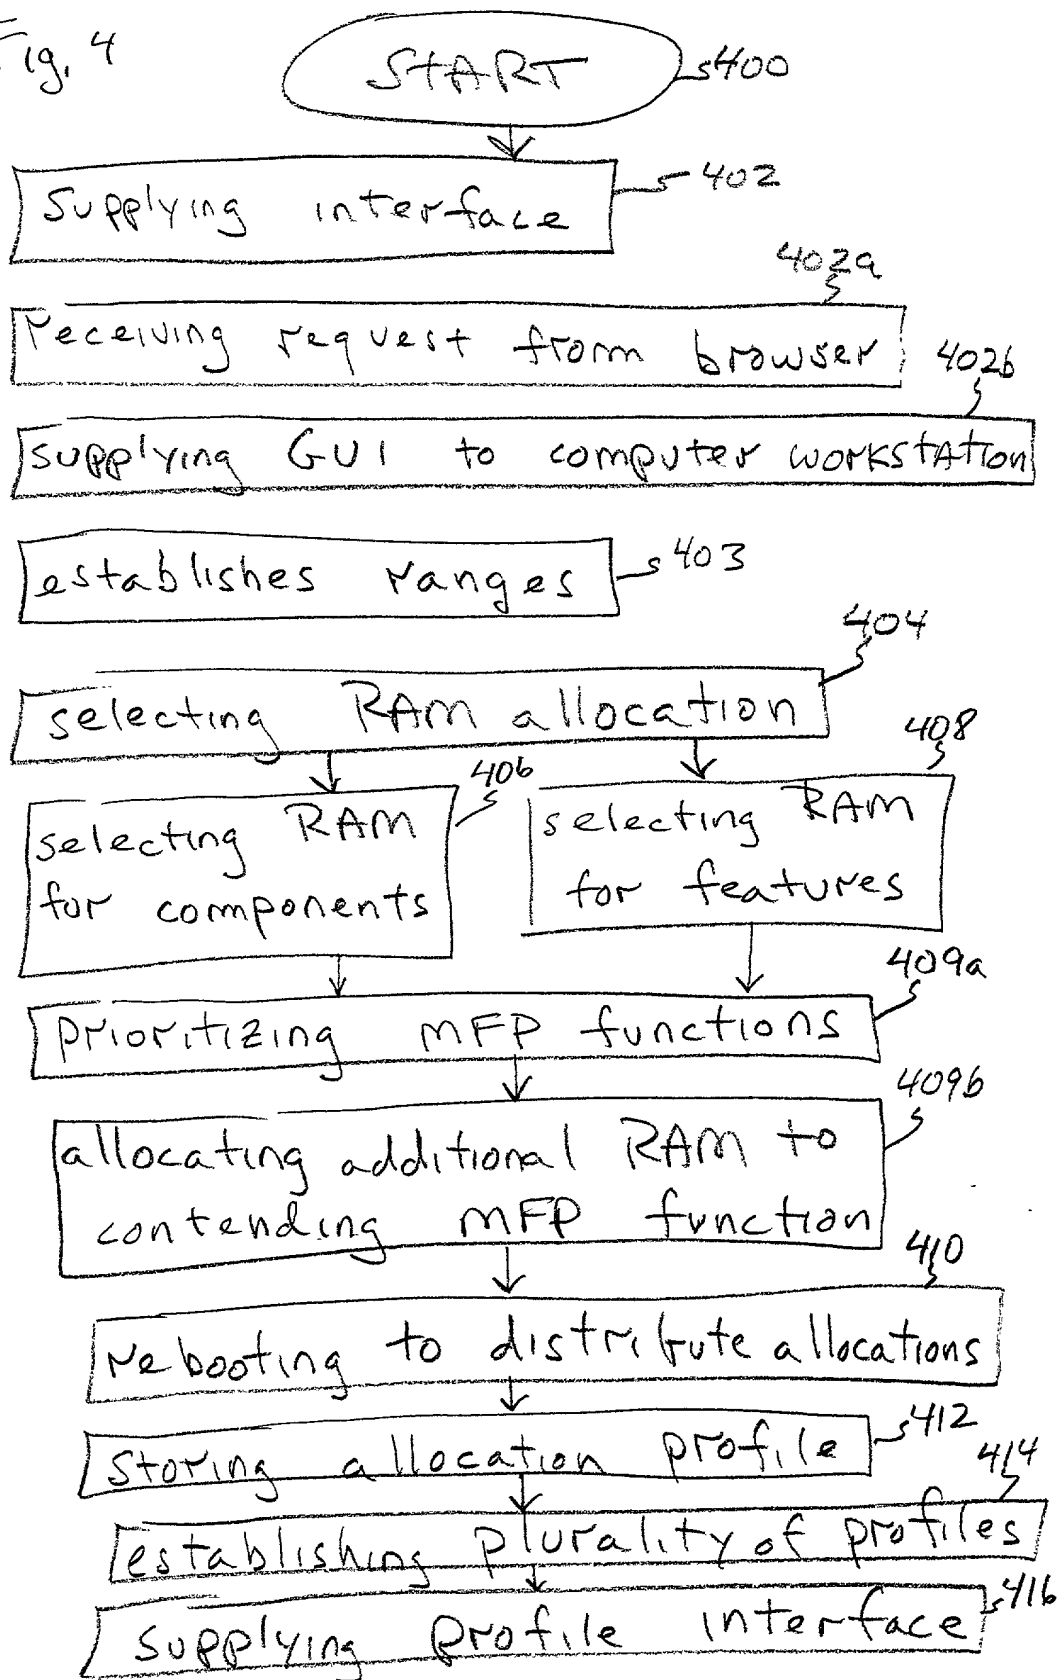 Fig. 4
START
400
402
supplying interface
402a
receiving request from browser
402b
supplying GUI to computer workstation
establishes ranges
403
404
selecting RAM allocation
406
408
selecting RAM
for components
selecting RAM
for features
409a
prioritizing MFP functions
409b
allocating additional RAM to
contending MFP function
410
rebooting to distribute allocations
412
storing allocation profile
414
establishing plurality of profiles
416
supplying profile interface